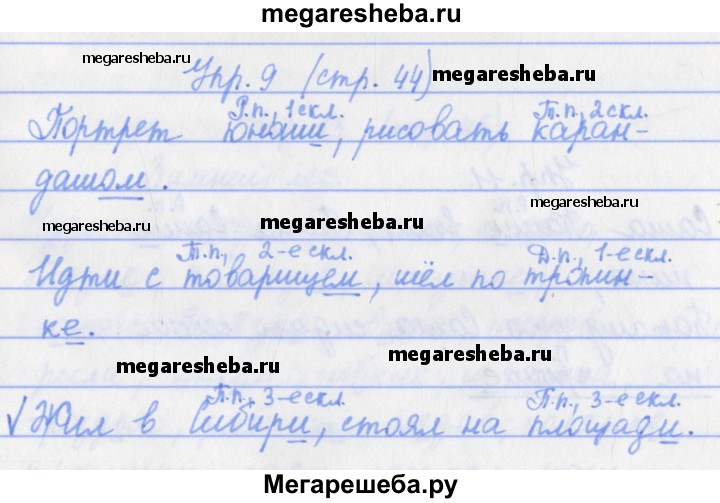 megaresheba.ru
megaresheba.ru Упр. 9 (стр. 44) megaresheba.ru
Р.п., 1 скл. Т.п., 2 скл.
Портрет юноши, рисовать каран-
megaresheba.ru
дашом. megaresheba.ru
megaresheba.ru megaresheba.ru
Т.п., 2-е скл. Д.п., 1-е скл.
Идти с товарищем, шёл по тропин-
ке.
megaresheba.ru megaresheba.ru
П.п., 3-е скл. П.п., 3-е скл.
√ Жил в Сибири, стоял на площади.
Мегарешеба.ру